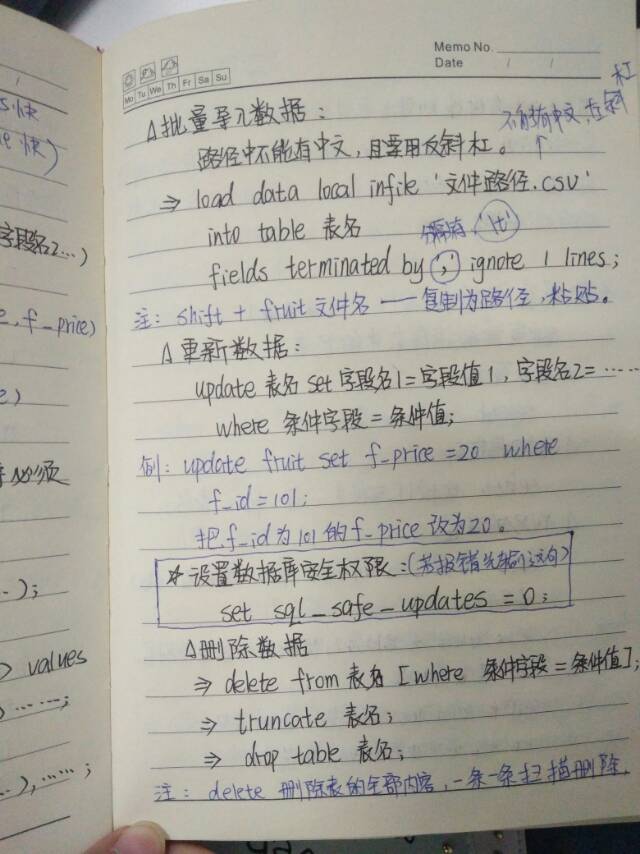 s快
ne 快)
字段名2…)
e, f_price)
e)
必须
..);
) values
)……;
..),……;
Memo No.
Date / /
Mo Tu We Th Fr Sa Su
△批量导入数据:
不能有中文,左斜杠
↑
路径中不能有中文,且要用反斜杠。
⇒ load data local infile '文件路径.csv'
into table 表名
分隔符 '\t'
fields terminated by ',' ignore 1 lines;
注: shift + fruit 文件名 —— 复制为路径,粘贴。
△重新数据:
update 表名 set 字段名1=字段值1,字段名2=……
where 条件字段=条件值;
例: update fruit set f_price=20 where
f_id=101;
把f_id为101的f_price改为20。
☆设置数据库安全权限:(若报错先输入这句)
set sql_safe_updates = 0;
△删除数据
⇒ delete from 表名 [where 条件字段=条件值];
⇒ truncate 表名;
⇒ drop table 表名;
注: delete 删除表的全部内容,一条一条扫描删除.